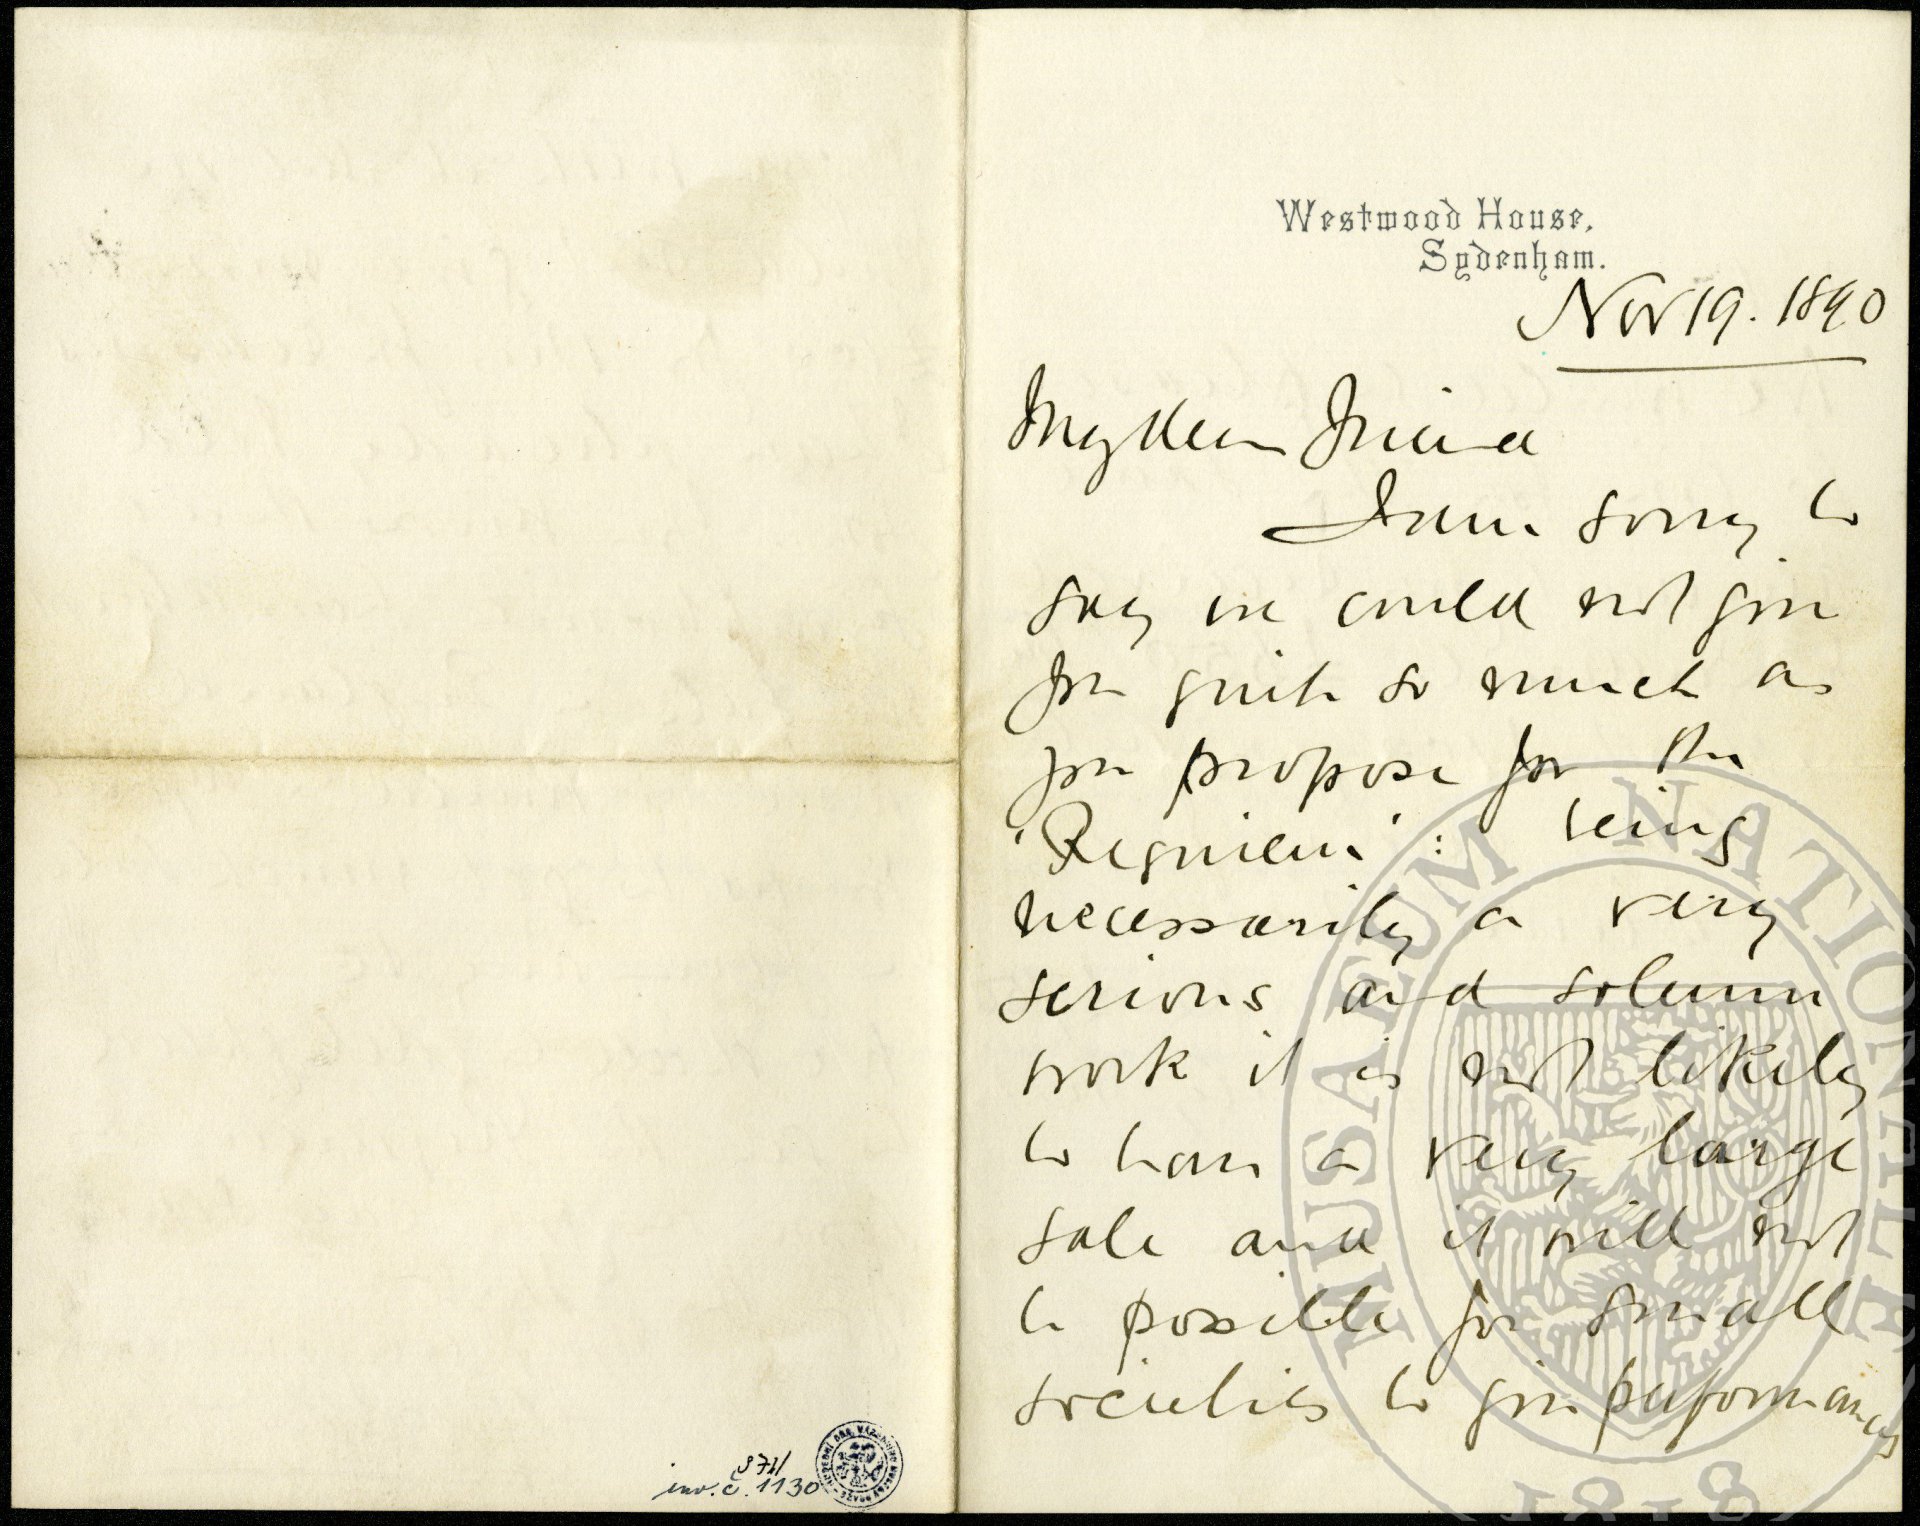 Westwood House,
Sydenham.
Nov 19. 1890
My dear Friend
I am sorry to
say we could not give
you quite so much as
you propose for the
'Requiem': being
necessarily a very
serious and solemn
work it is not likely
to have a very large
sale and it will not
be possible for small
societies to give performances
371/
inv. č. 1130
MUSAEUM NATIONALE
1818